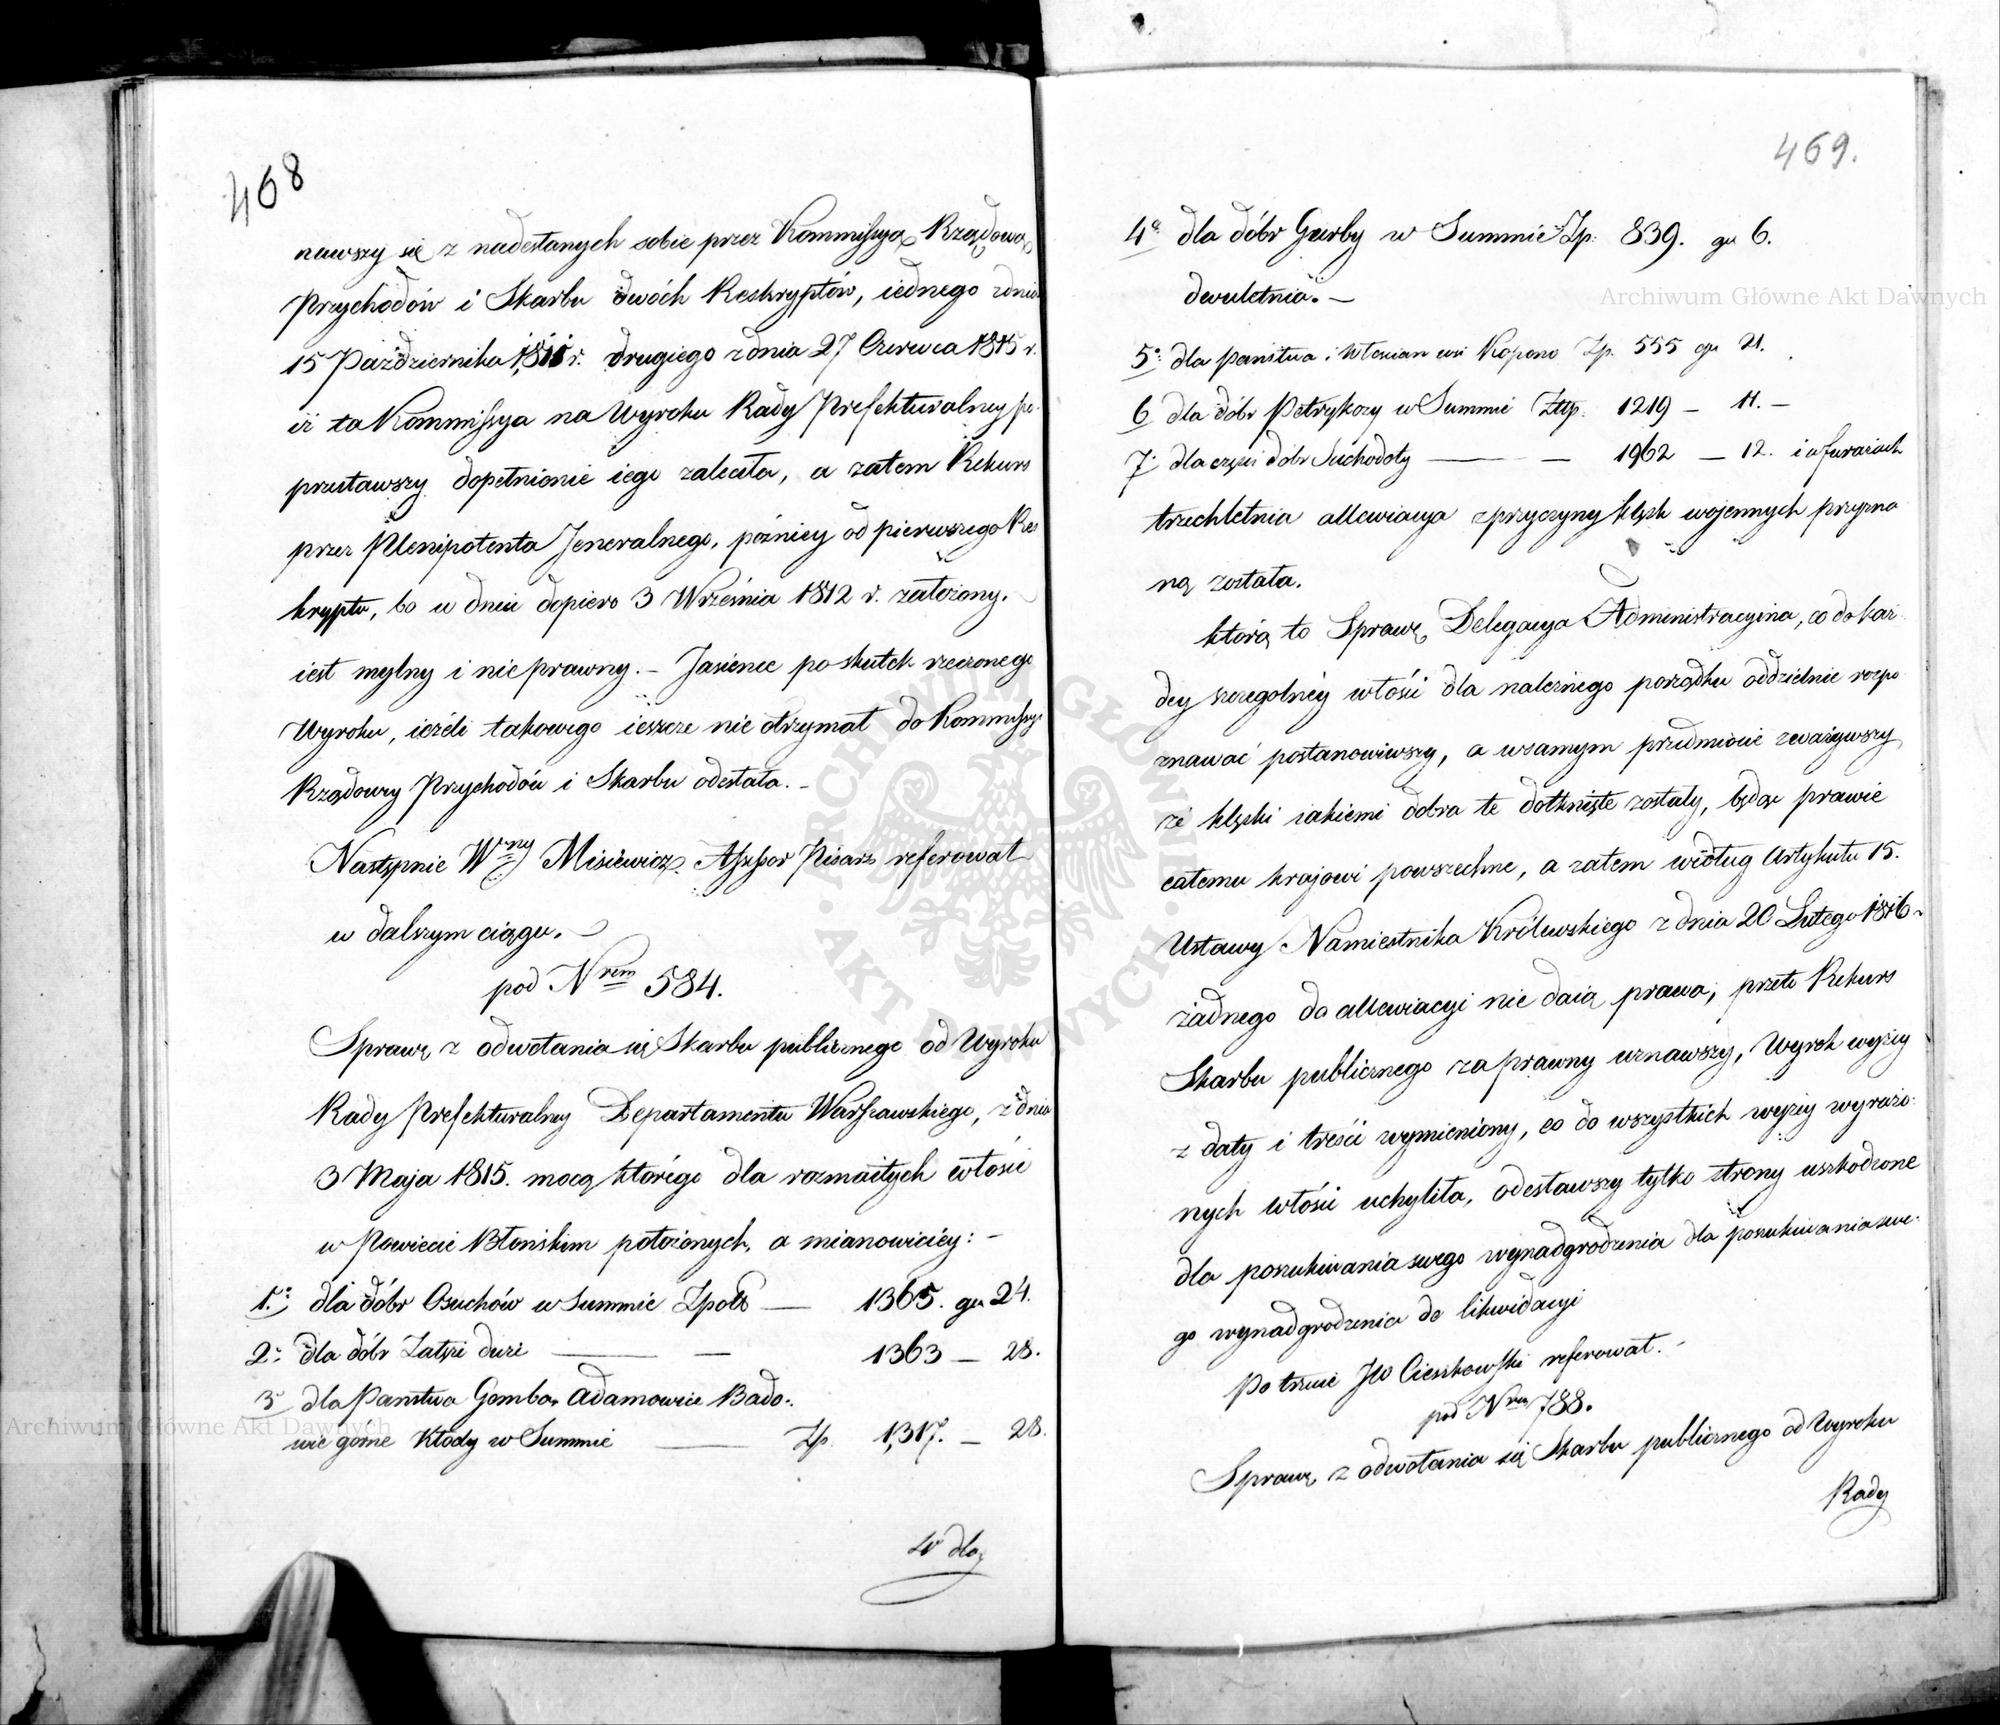 468
nawszy się z nadesłanych sobie przez Kommissyą Rządową
Przychodów i Skarbu dwóch Reskryptów, iednego z dnia
15 Października 1811 r. drugiego z dnia 27 Czerwca 1815 r.
iż ta Kommissya na Wyroku Rady Prefekturalney po-
przestawszy dopełnienie iego zaleciła, a zatem Rekurs
przez Plenipotenta Jeneralnego, późniey od pierwszego Res
kryptu, bo w dniu dopiero 3 Września 1812 r. założony.
iest mylny i nie prawny. – Jasieńce po skutek rzeczonego
Wyroku, ieżeli takowego ieszcze nie otrzymał do Kommissyi
Rządowey Przychodów i Skarbu odesłała. –
Następnie Wny Misiewicz Assessor Pisarz referował
w dalszym ciągu.
pod Nrem 584.
Sprawę z odwołania się Skarbu publicznego od Wyroku
Rady Prefekturalney Departamentu Warszawskiego, z dnia
3 Maja 1815. mocą którego dla rozmaitych włości
w Powiecie Błonskim położonych, a mianowiciéy: –
1.o dla dóbr Osuchów w Summie Zpols — 1365. gr 24.
2.o dla dóbr Zatęże duże — — 1363 – 28.
3o dla Państwa Gomba, Adamowice Bado-
wie gorne Kłody w Summie — Zp. 1,317. – 28.
4o dla
469.
4o dla dóbr Gurby w Summie Zp. 839. gr 6.
dwuletnia. –
5o dla państwa i włościan wsi Kopono Zp. 555 gr 21.
6 dla dóbr Petrykozy w Summie Złtp. 1219 – 11. –
7o dla części dobr Suchodoły — — 1962 – 12. i w furażach
trzechletnia allewiacya z przyczyny klęsk wojennych przyzna
ną została.
którą to Sprawę Delegacya Administracyjna, co do każ
dey szczegolney włości dla należnego porządku oddzielnie rozpo
znawać postanowiwszy, a w samym przedmiocie zważywszy
że klęski iakiemi dobra te dotknięte zostały, będąc prawie
całemu krajowi powszechne, a zatem według Artykułu 15.
Ustawy Namiestnika Królewskiego z dnia 20 Lutego 1816 r.
żadnego do allewiacyi nie daią prawa, przeto Rekurs
Skarbu publicznego za prawny uznawszy, Wyrok wyżey
z daty i treści wymieniony, co do wszystkich wyżey wyrażo-
nych włości uchyliła, odesławszy tylko strony uszkodzone
dla poszukiwania swego wynadgrodzenia dla poszukiwania swe-
go wynadgrodzenia do likwidacyi
Po trzecie JW Cieszkowski referował. –
pod Nrem 788.
Sprawę z odwołania się Skarbu publicznego od Wyroku
Rady
Archiwum Główne Akt Dawnych
Archiwum Główne Akt Dawnych
ARCHIWUM GŁÓWNE · AKT DAWNYCH ·